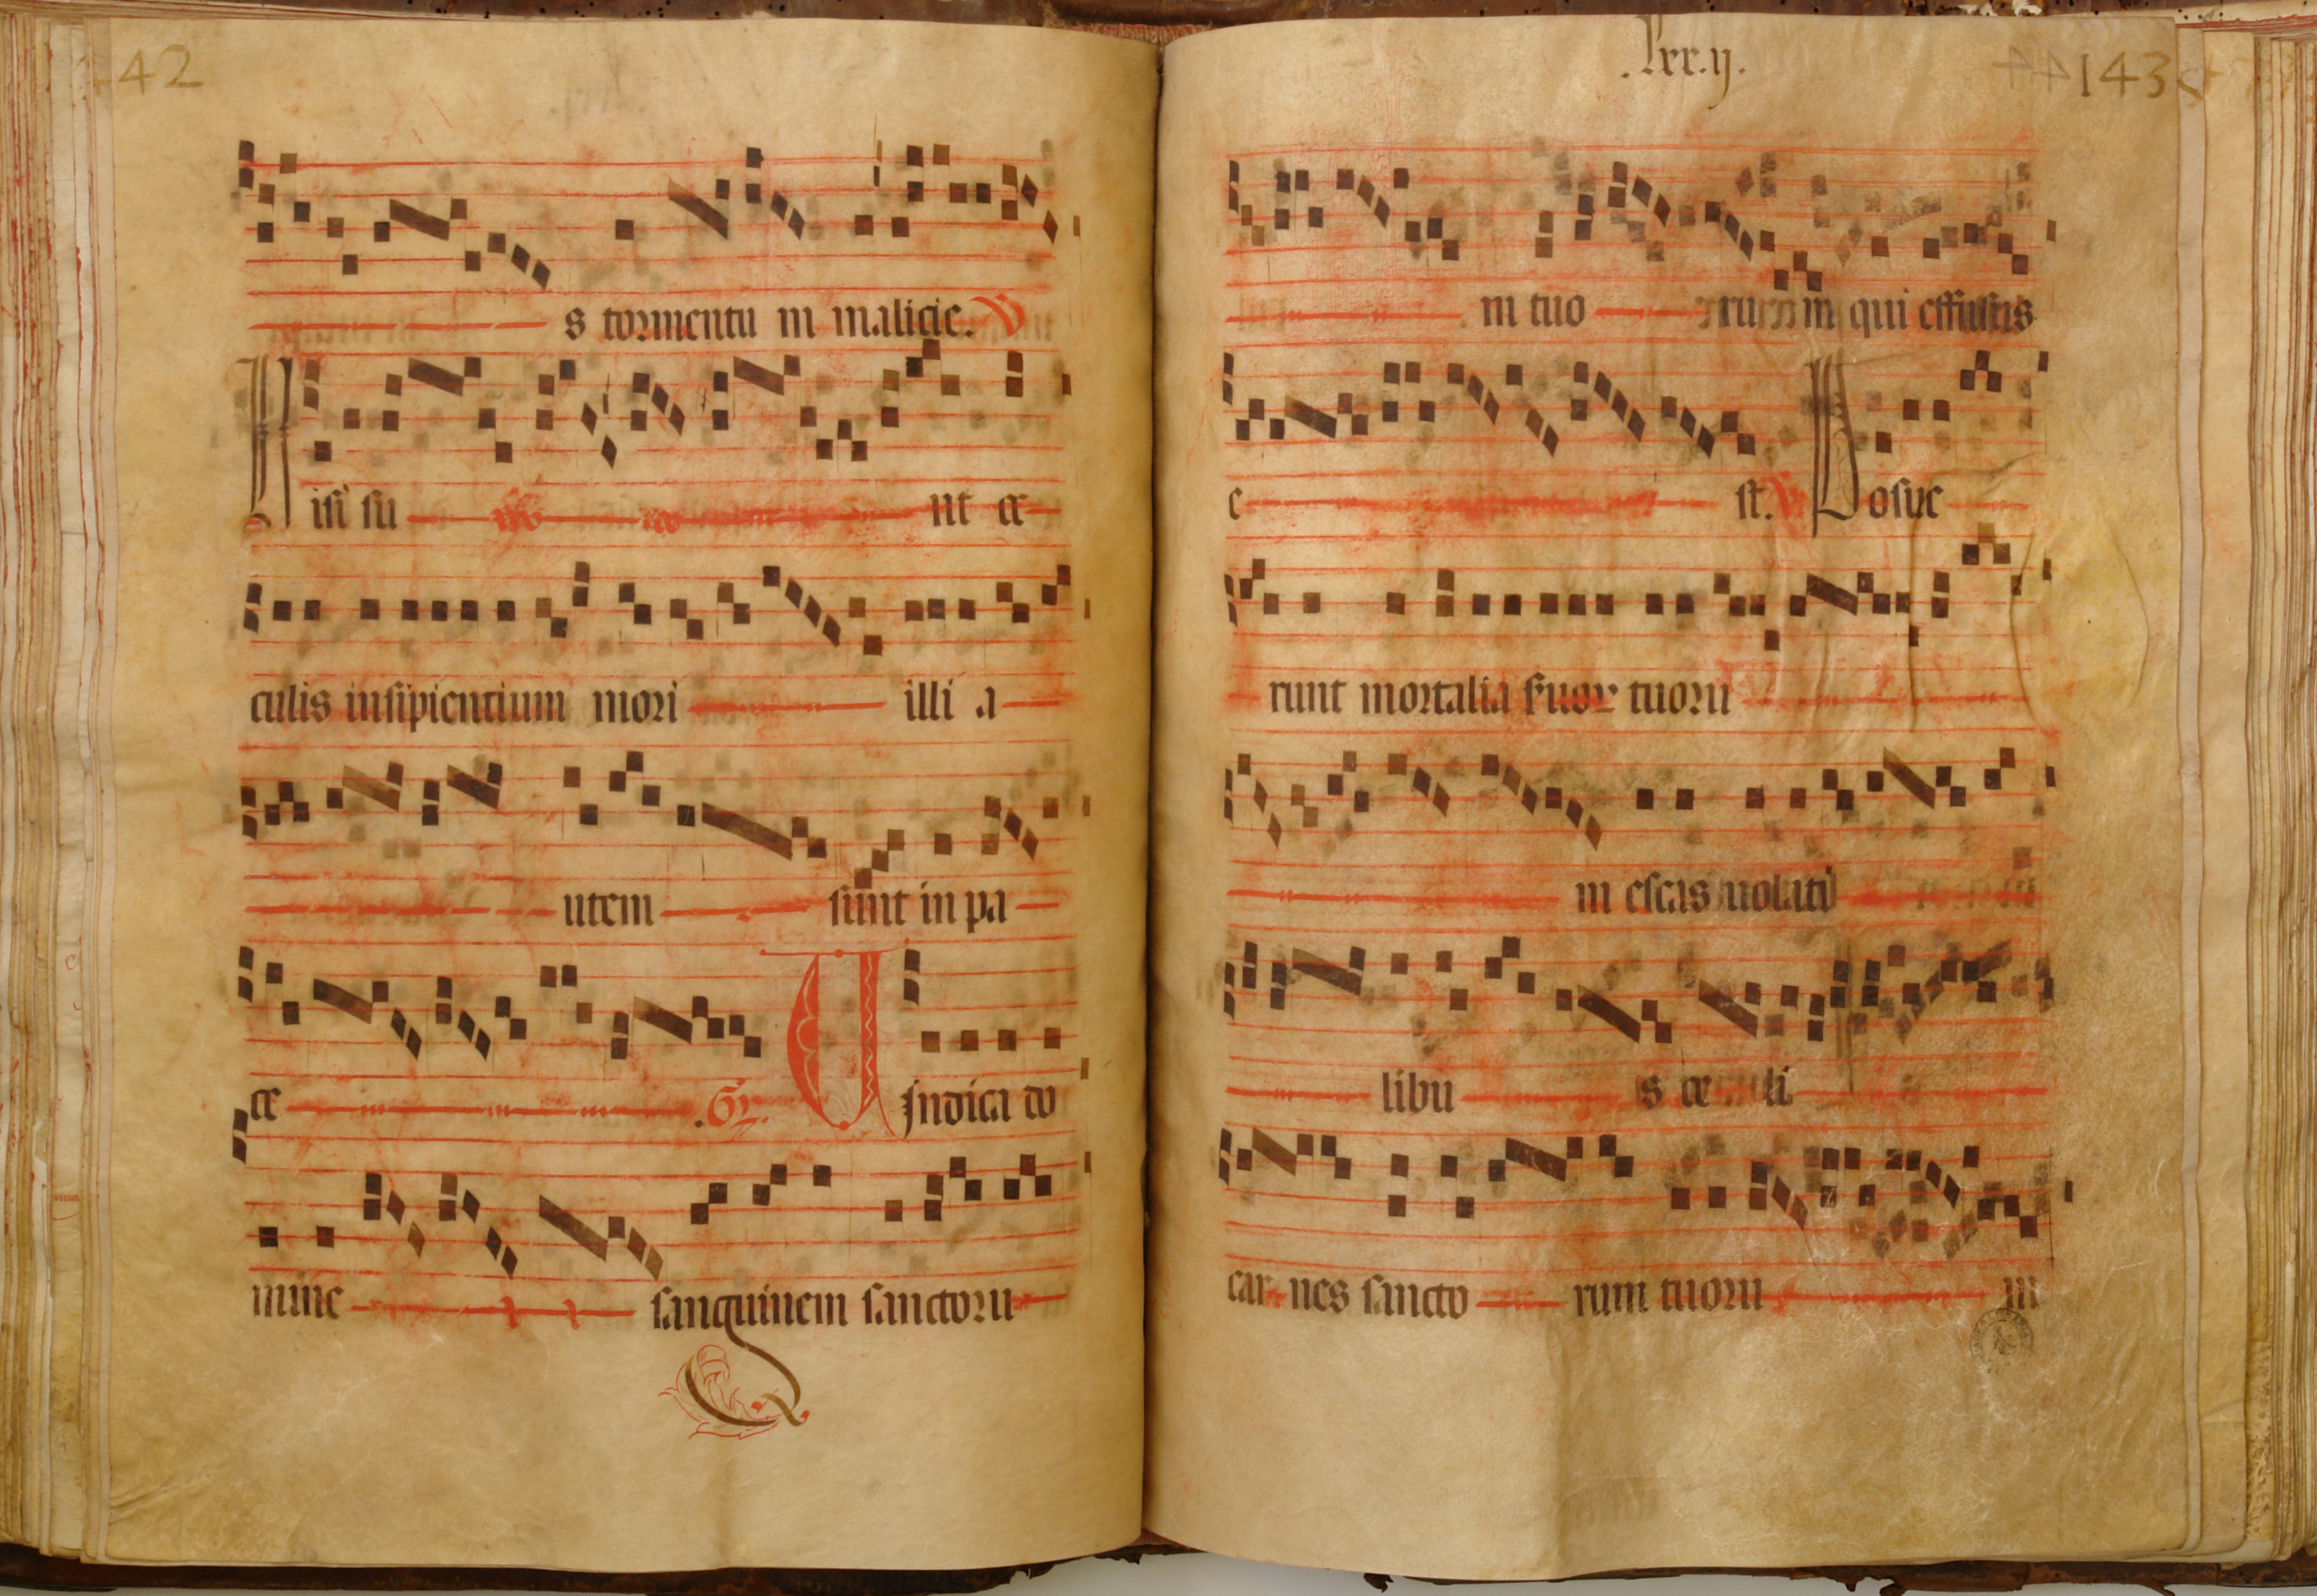 42
s tormentu m malicie. V
Visi su nt oc
culis insipientium mori illi a
utem sunt in pa
ce .Gr. Vindica do
mine sanguinem sanctoru
.lxx.ij.
143
m tuo rum qui effusus
e st. V Posue
runt mortalia suor tuoru
m escas uolati
libu s ce li
car nes sancto rum tuoru m